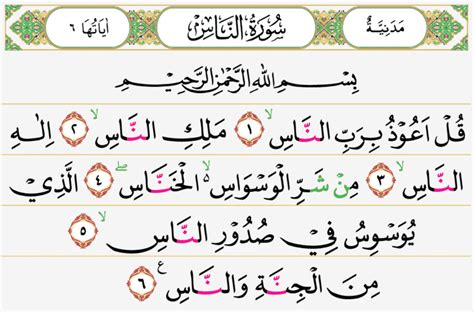 مَدَنِيَّةٌ سُوْرَةُ النَّاسِ اٰيَاتُهَا ٦
بِسْمِ اللهِ الرَّحْمٰنِ الرَّحِيْمِ
قُلْ اَعُوْذُ بِرَبِّ النَّاسِۙ ١ مَلِكِ النَّاسِۙ ٢ اِلٰهِ
النَّاسِۙ ٣ مِنْ شَرِّ الْوَسْوَاسِ ەۙ الْخَنَّاسِۖ ٤ الَّذِيْ
يُوَسْوِسُ فِيْ صُدُوْرِ النَّاسِۙ ٥
مِنَ الْجِنَّةِ وَالنَّاسِ ࣖ ٦